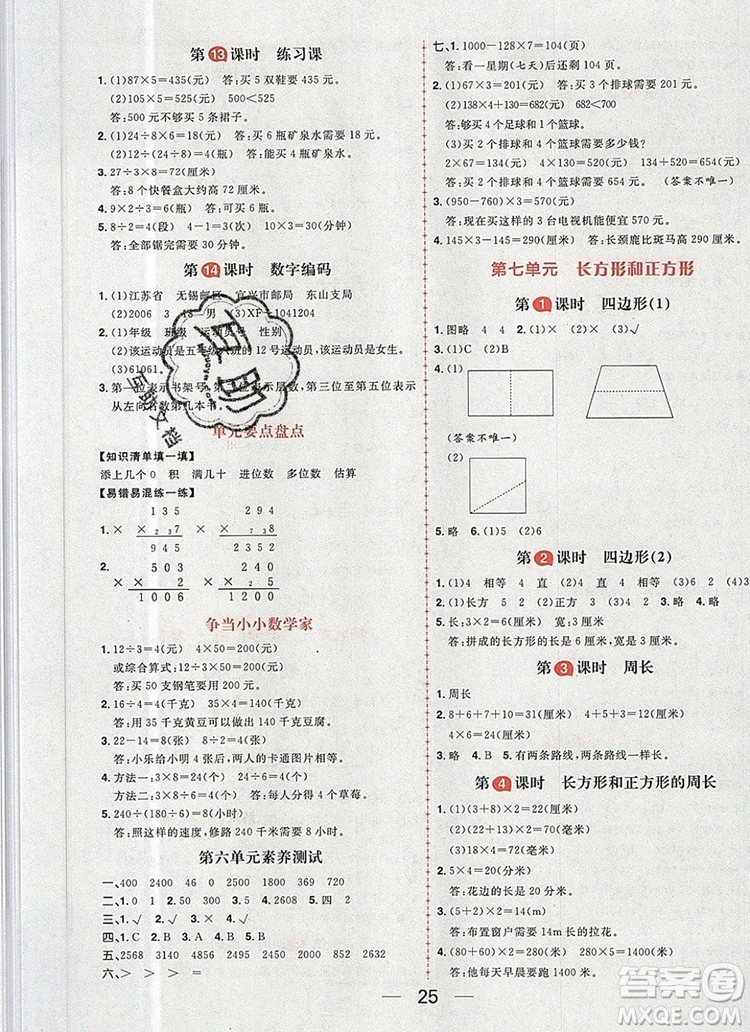 第13课时 练习课
1.(1)87×5=435(元) 答:买5双鞋要435元。
(2)105×5=525(元) 500<525
答:500元不够买5条裙子。
2.(1)24÷8×6=18(元) 答:买6瓶矿泉水需要18元。
(2)12÷(24÷8)=4(瓶) 答:能买4瓶矿泉水。
3.27÷3×8=72(厘米)
答:8个快餐盒大约高72厘米。
4.9×2÷3=6(瓶) 答:可买6瓶。
5.8÷2=4(段) 4-1=3(次) 10×3=30(分钟)
答:全部锯完需要30分钟。
第14课时 数字编码
1.(1)江苏省 无锡邮区 宜兴市邮局 东山支局
(2)2006 3 18 男 (3)XF-1041204
2.(1)年级 班级 运动员号 性别
(2)该运动员是五年级八班的12号运动员,该运动员是女生。
(3)61061。
3.第一位表示书架号,第二位表示层数,第三位至第五位表示
从左向右数第几本书。
单元要点盘点
【知识清单填一填】
添上几个0 积 满几十 进位数 估算
【易错易混练一练】
1. 135 235
× 7 × 4
945 940
2. 503 603
× 2 × 5
1006 3015
争当小小数学家
1.12÷3=4(元) 4×50=200(元)
或综合算式:12÷3×50=200(元)
答:买50支钢笔要用200元。
2.16÷4=4(千克) 35×4=140(千克)
答:用35千克黄豆可以做出140千克豆腐。
3.22-14=8(张) 8÷2=4(张)
答:小乐给小明4张后,两人的卡通图片相等。
4.方法一:2×3=6(个) 24÷6=4(个)
方法二:24÷3=8(个) 8÷2=4(个) 答:每人4个草莓。
5.240÷(90÷3)=8(小时)
答:照这样的速度,修路240千米需要8小时。
第六单元素养测试
一、400 2400 46 0 2500 300 320 2100
二、1.0 0 2.8 5 3.5 4.2608 5.四 2
三、1.√ 2.× 3.× 4.√
四、1.C 2.B 3.A 4.A 5.C
五、2568 2450 2439 2832 1000 3352
六、> > > =
七、1.1000-128×7=104(页)
答:看一星期(七天)后还剩104页。
2.(1)67×3=201(元) 答:买3个排球需要201元。
(2)138×4+130=682(元) 682>600
答:不够买4个足球和1个篮球。
(3)买2个排球和4个篮球需要多少钱?
2×67=134(元) 4×130=520(元) 134+520=654(元)
答:买2个排球和4个篮球需要654元。(答案不唯一)
3.(950-760)×3=570(元)
答:现在买这样的3台电视机能便宜570元。
4.145×3-145=290(厘米) 答:长颈鹿比斑马高290厘米。
第七单元 长方形和正方形
第1课时 四边形(1)
1.图略 4 4 2.√ × √ ×
3.(1)C (2)B
4.(1)
(答案不唯一)
(2)
5.略 6.(1)5 (2)6
第2课时 四边形(2)
1.(1)4 相等 4 直 (2)4 直 相等 (3)4 相等 2 3
2.(1)长方 5 2 (2)正方 3 3.略 4.略
5.长:3×2=6(厘米) 宽:3厘米
答:拼成的长方形的长是6厘米,宽是3厘米。
第3课时 周长
1.周长
2.8+6+7+9=30(厘米) 4+5+3=12(厘米)
4×6=24(厘米)
3.略 4.B 5.有两条路线,两条路线一样长。
第4课时 长方形和正方形的周长
1.(1)(3+8)×2=22(厘米)
(2)(20+15)×2=70(厘米)
(3)18×4=72(厘米)
2.5×4=20(分米)
答:花边的长是20分米。
3.(5+2)×2=14(m)
答:布置窗户需要14m长的拉花。
4.(80+60)×2=280(米)
答:他每天早晨要跑
25
互助文档
答案圈
MXQE.COM